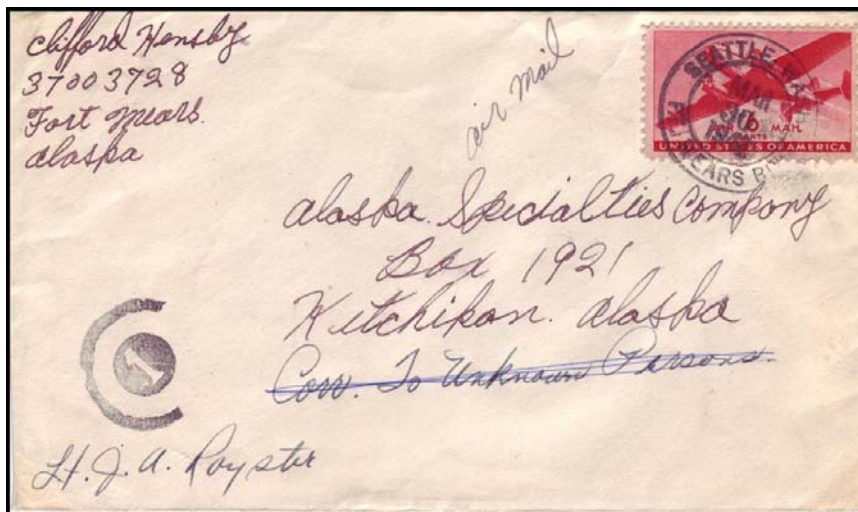 Clifford Hensby
37003728
Fort Mears
Alaska
air mail
SEATTLE, WASH.
MAR
30
FT. MEARS BR.
6 CENTS
AIR MAIL
UNITED STATES OF AMERICA
Alaska Specialties Company
Box 1921
Kitchikan. Alaska
Corr. To Unknown Persons.
C
1
Lt. J. A. Royster